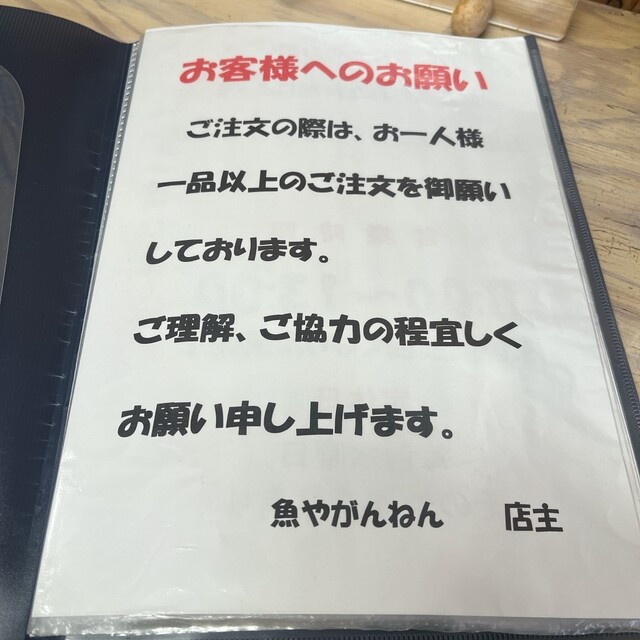 お客様へのお願い
ご注文の際は、お一人様
一品以上のご注文を御願い
しております。
ご理解、ご協力の程宜しく
お願い申し上げます。
魚やがんねん　　店主